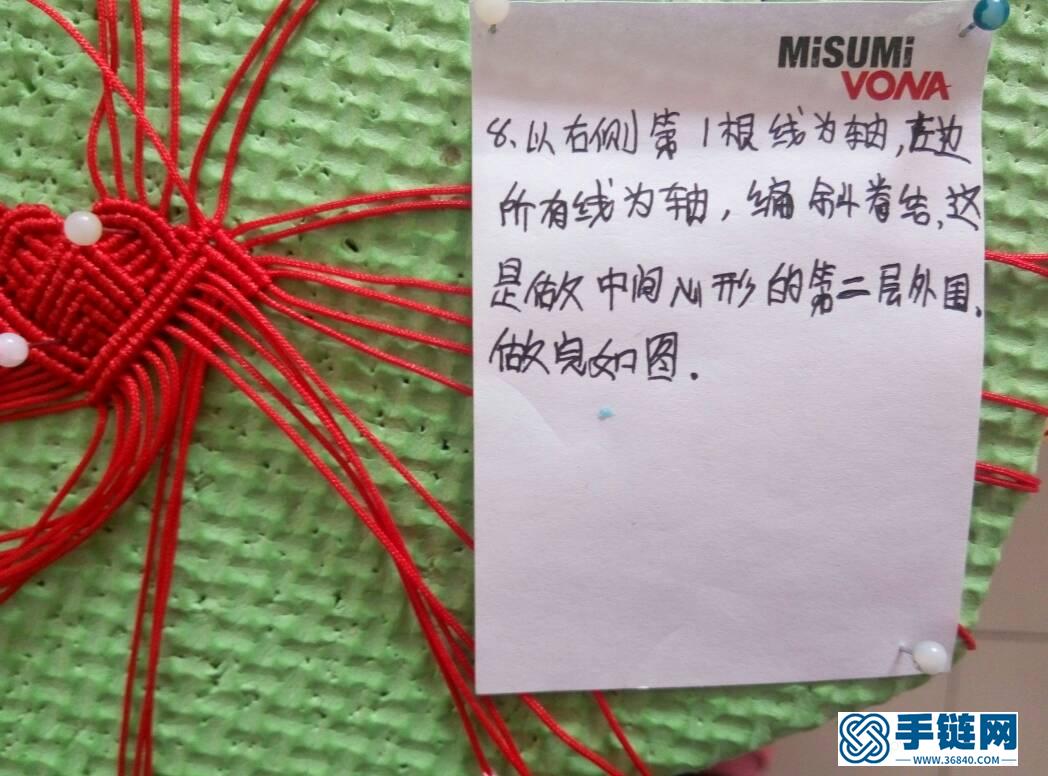 MiSUMi
VONA
8、以右侧第1根线为轴,左边
所有线为轴,编斜卷结,这
是做中间心形的第二层外围.
做完如图.
手链网
WWW.36840.COM